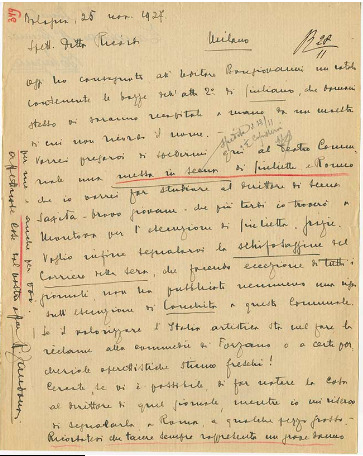 Bologna, 25 nov. 1927
Spett. Ditta Ricordi
Milano
R 28/11
Oggi ho consegnato all'editore Bongiovanni un rotolo
contenente le bozze dell'atto 2º di Giuliano, che domani
stesso vi saranno recapitate a mano da un maestro
di cui non ricordo il nome.
Vorrei pregarvi di spedirmi qui al Teatro Comu-
nale una messa in scena di Giulietta e Romeo
che io vorrei far studiare al direttore di scena
bravo giovane che più tardi io troverò a
Mantova per l'esecuzione di Giulietta. Grazie.
Voglio infine segnalarvi la schifosaggine del
Corriere della sera, che facendo eccezione di tutti i
giornali, non ha pubblicato nemmeno una riga
sull'esecuzione di Conchita a questo Comunale.
Se il valorizzare l'Italia artistica sta nel fare la
réclame alla commedia di Forzano o a certe por-
cherie operettistiche stiamo freschi!
Cercate, se vi è possibile, di far notare la cosa
al direttore di quel giornale, mentre io mi riservo
di segnalarla, a Roma, a qualche pezzo grosso.
Ricordatevi che tacere sempre rappresenta un grave danno
per me e anche per voi.
affettuose cose dal vostro aff. RZandonai